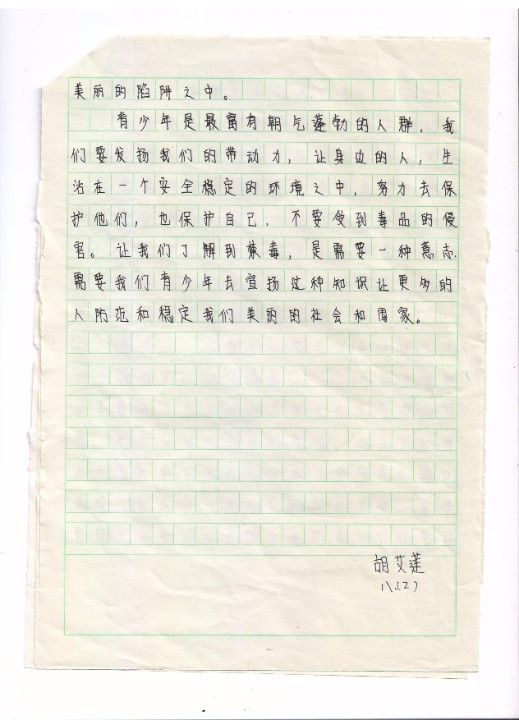 美丽的陷阱之中。
青少年是最富有朝气蓬勃的人群，我
们要发扬我们的带动力，让身边的人，生
活在一个安全稳定的环境之中，努力去保
护他们，也保护自己，不要受到毒品的侵
害。让我们了解到禁毒，是需要一种意志，
需要我们青少年去宣扬这种知识让更多的
人防范和稳定我们美丽的社会和国家。
胡艾莲
八.(2)